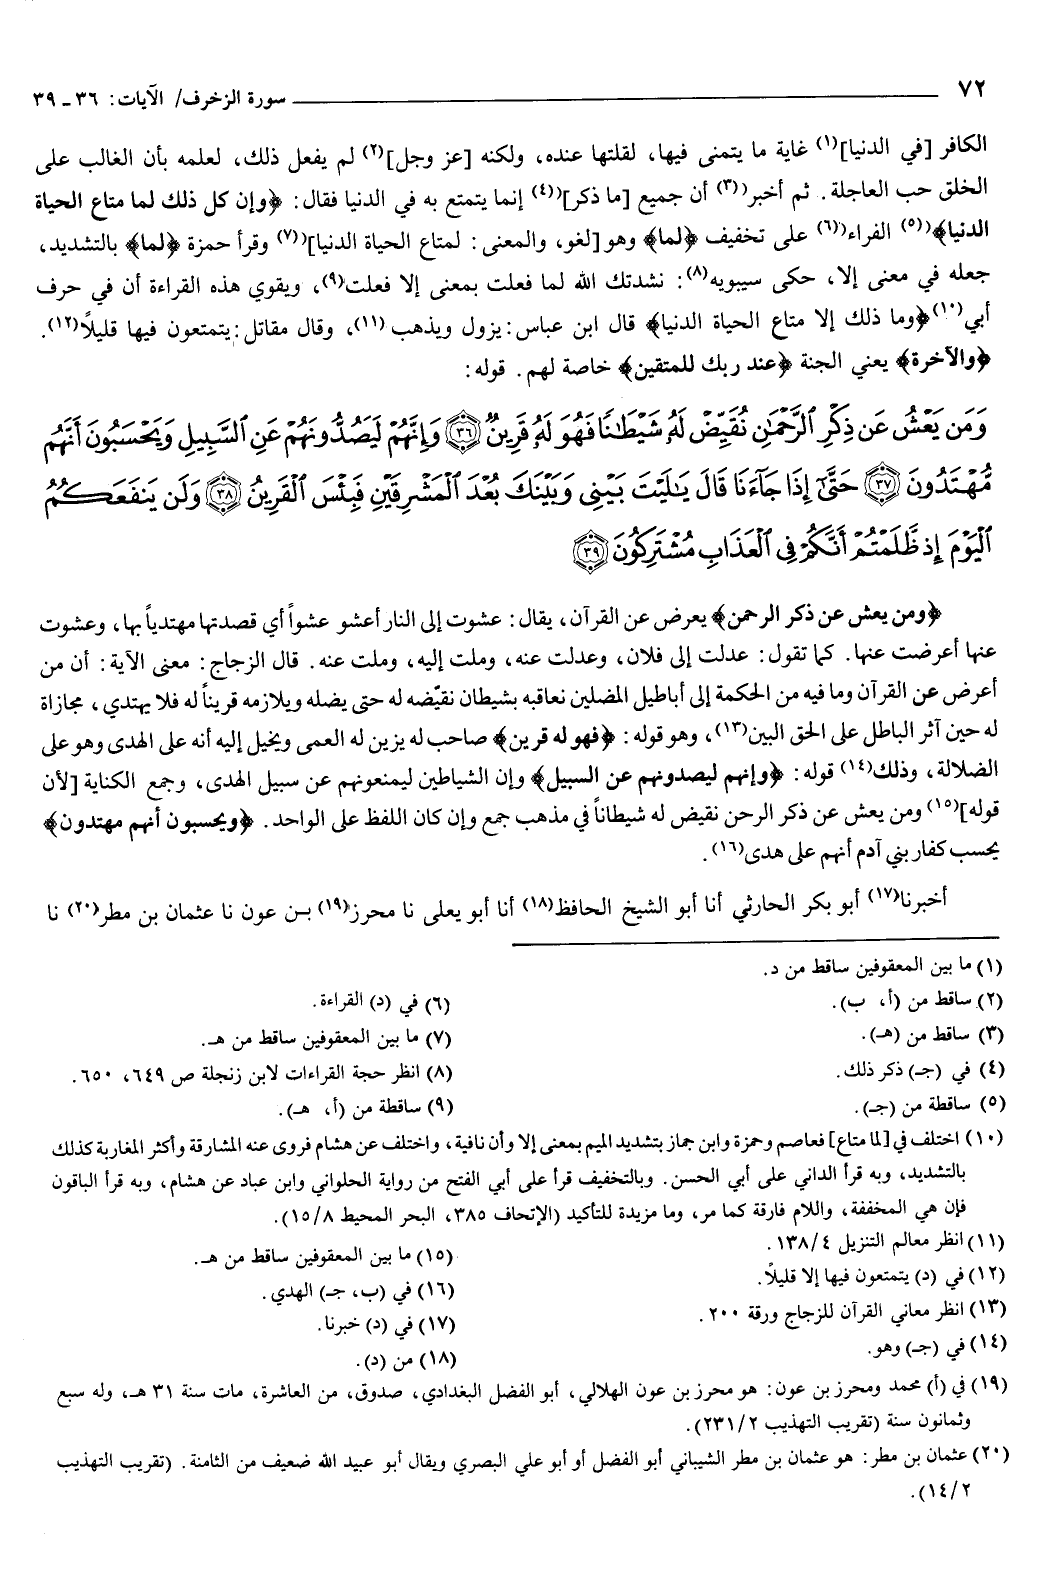 ٧٢ سورة الزخرف/ الآيات: ٣٦ - ٣٩
الكافر [في الدنيا](١) غاية ما يتمنى فيها، لقلتها عنده، ولكنه [عز وجل](٢) لم يفعل ذلك، لعلمه بأن الغالب على
الخلق حب العاجلة. ثم أخبر(٣) أن جميع [ما ذكر](٤) إنما يتمتع به في الدنيا فقال: ﴿وإن كل ذلك لما متاع الحياة
الدنيا﴾(٥) الفراء(٦) على تخفيف ﴿لما﴾ وهو[لغو، والمعنى: لمتاع الحياة الدنيا](٧) وقرأ حمزة ﴿لما﴾ بالتشديد،
جعله في معنى إلا، حكى سيبويه(٨): نشدتك الله لما فعلت بمعنى إلا فعلت(٩)، ويقوي هذه القراءة أن في حرف
أبي(١٠)﴿وما ذلك إلا متاع الحياة الدنيا﴾ قال ابن عباس: يزول ويذهب(١١)، وقال مقاتل: يتمتعون فيها قليلاً(١٢).
﴿والآخرة﴾ يعني الجنة ﴿عند ربك للمتقين﴾ خاصة لهم. قوله:
وَمَن يَعْشُ عَن ذِكْرِ ٱلرَّحْمَٰنِ نُقَيِّضْ لَهُۥ شَيْطَٰنًا فَهُوَ لَهُۥ قَرِينٌ ٣٦ وَإِنَّهُمْ لَيَصُدُّونَهُمْ عَنِ ٱلسَّبِيلِ وَيَحْسَبُونَ أَنَّهُم
مُّهْتَدُونَ ٣٧ حَتَّىٰٓ إِذَا جَآءَنَا قَالَ يَٰلَيْتَ بَيْنِى وَبَيْنَكَ بُعْدَ ٱلْمَشْرِقَيْنِ فَبِئْسَ ٱلْقَرِينُ ٣٨ وَلَن يَنفَعَكُمُ
ٱلْيَوْمَ إِذ ظَّلَمْتُمْ أَنَّكُمْ فِى ٱلْعَذَابِ مُشْتَرِكُونَ ٣٩
﴿ومن يعش عن ذكر الرحمن﴾ يعرض عن القرآن، يقال: عشوت إلى النار أعشو عشواً أي قصدتها مهتدياً بها، وعشوت
عنها أعرضت عنها. كما تقول: عدلت إلى فلان، وعدلت عنه، وملت إليه، وملت عنه. قال الزجاج: معنى الآية: أن من
أعرض عن القرآن وما فيه من الحكمة إلى أباطيل المضلين نعاقبه بشيطان نقيّضه له حتى يضله ويلازمه قريناً له فلا يهتدي، مجازاة
له حين آثر الباطل على الحق البين(١٣)، وهو قوله: ﴿فهو له قرين﴾ صاحب له يزين له العمى ويخيل إليه أنه على الهدى وهو على
الضلالة، وذلك(١٤) قوله: ﴿وإنهم ليصدونهم عن السبيل﴾ وإن الشياطين ليمنعونهم عن سبيل الهدى، وجمع الكناية [لأن
قوله](١٥) ومن يعش عن ذكر الرحمن نقيض له شيطاناً في مذهب جمع وإن كان اللفظ على الواحد. ﴿ويحسبون أنهم مهتدون﴾
يحسب كفار بني آدم أنهم على هدى(١٦).
أخبرنا(١٧) أبو بكر الحارثي أنا أبو الشيخ الحافظ(١٨) أنا أبو يعلى نا محرز(١٩) بن عون نا عثمان بن مطر(٢٠) نا
(١) ما بين المعقوفين ساقط من د.
(٢) ساقط من (أ، ب).
(٣) ساقط من (هـ).
(٤) في (جـ) ذكر ذلك.
(٥) ساقطة من (جـ).
(٦) في (د) القراءة.
(٧) ما بين المعقوفين ساقط من هـ.
(٨) انظر حجة القراءات لابن زنجلة ص ٦٤٩، ٦٥٠.
(٩) ساقطة من (أ، هـ).
(١٠) اختلف في [لما متاع] فعاصم وحمزة وابن جماز بتشديد الميم بمعنى إلا وأن نافية، واختلف عن هشام فروى عنه المشارقة وأكثر المغاربة كذلك
بالتشديد، وبه قرأ الداني على أبي الحسن. وبالتخفيف قرأ على أبي الفتح من رواية الحلواني وابن عباد عن هشام، وبه قرأ الباقون
فإن هي المخففة، واللام فارقة كما مر، وما مزيدة للتأكيد (الإتحاف ٣٨٥، البحر المحيط ١٥/٨).
(١١) انظر معالم التنزيل ١٣٨/٤.
(١٢) في (د) يتمتعون فيها إلا قليلاً.
(١٣) انظر معاني القرآن للزجاج ورقة ٢٠٠.
(١٤) في (جـ) وهو.
(١٥) ما بين المعقوفين ساقط من هـ.
(١٦) في (ب، جـ) الهدي.
(١٧) في (د) خبرنا.
(١٨) من (د).
(١٩) في (أ) محمد ومحرز بن عون: هو محرز بن عون الهلالي، أبو الفضل البغدادي، صدوق، من العاشرة، مات سنة ٣١ هـ، وله سبع
وثمانون سنة (تقريب التهذيب ٢٣١/٢).
(٢٠) عثمان بن مطر: هو عثمان بن مطر الشيباني أبو الفضل أو أبو علي البصري ويقال أبو عبيد الله ضعيف من الثامنة. (تقريب التهذيب
١٤/٢).